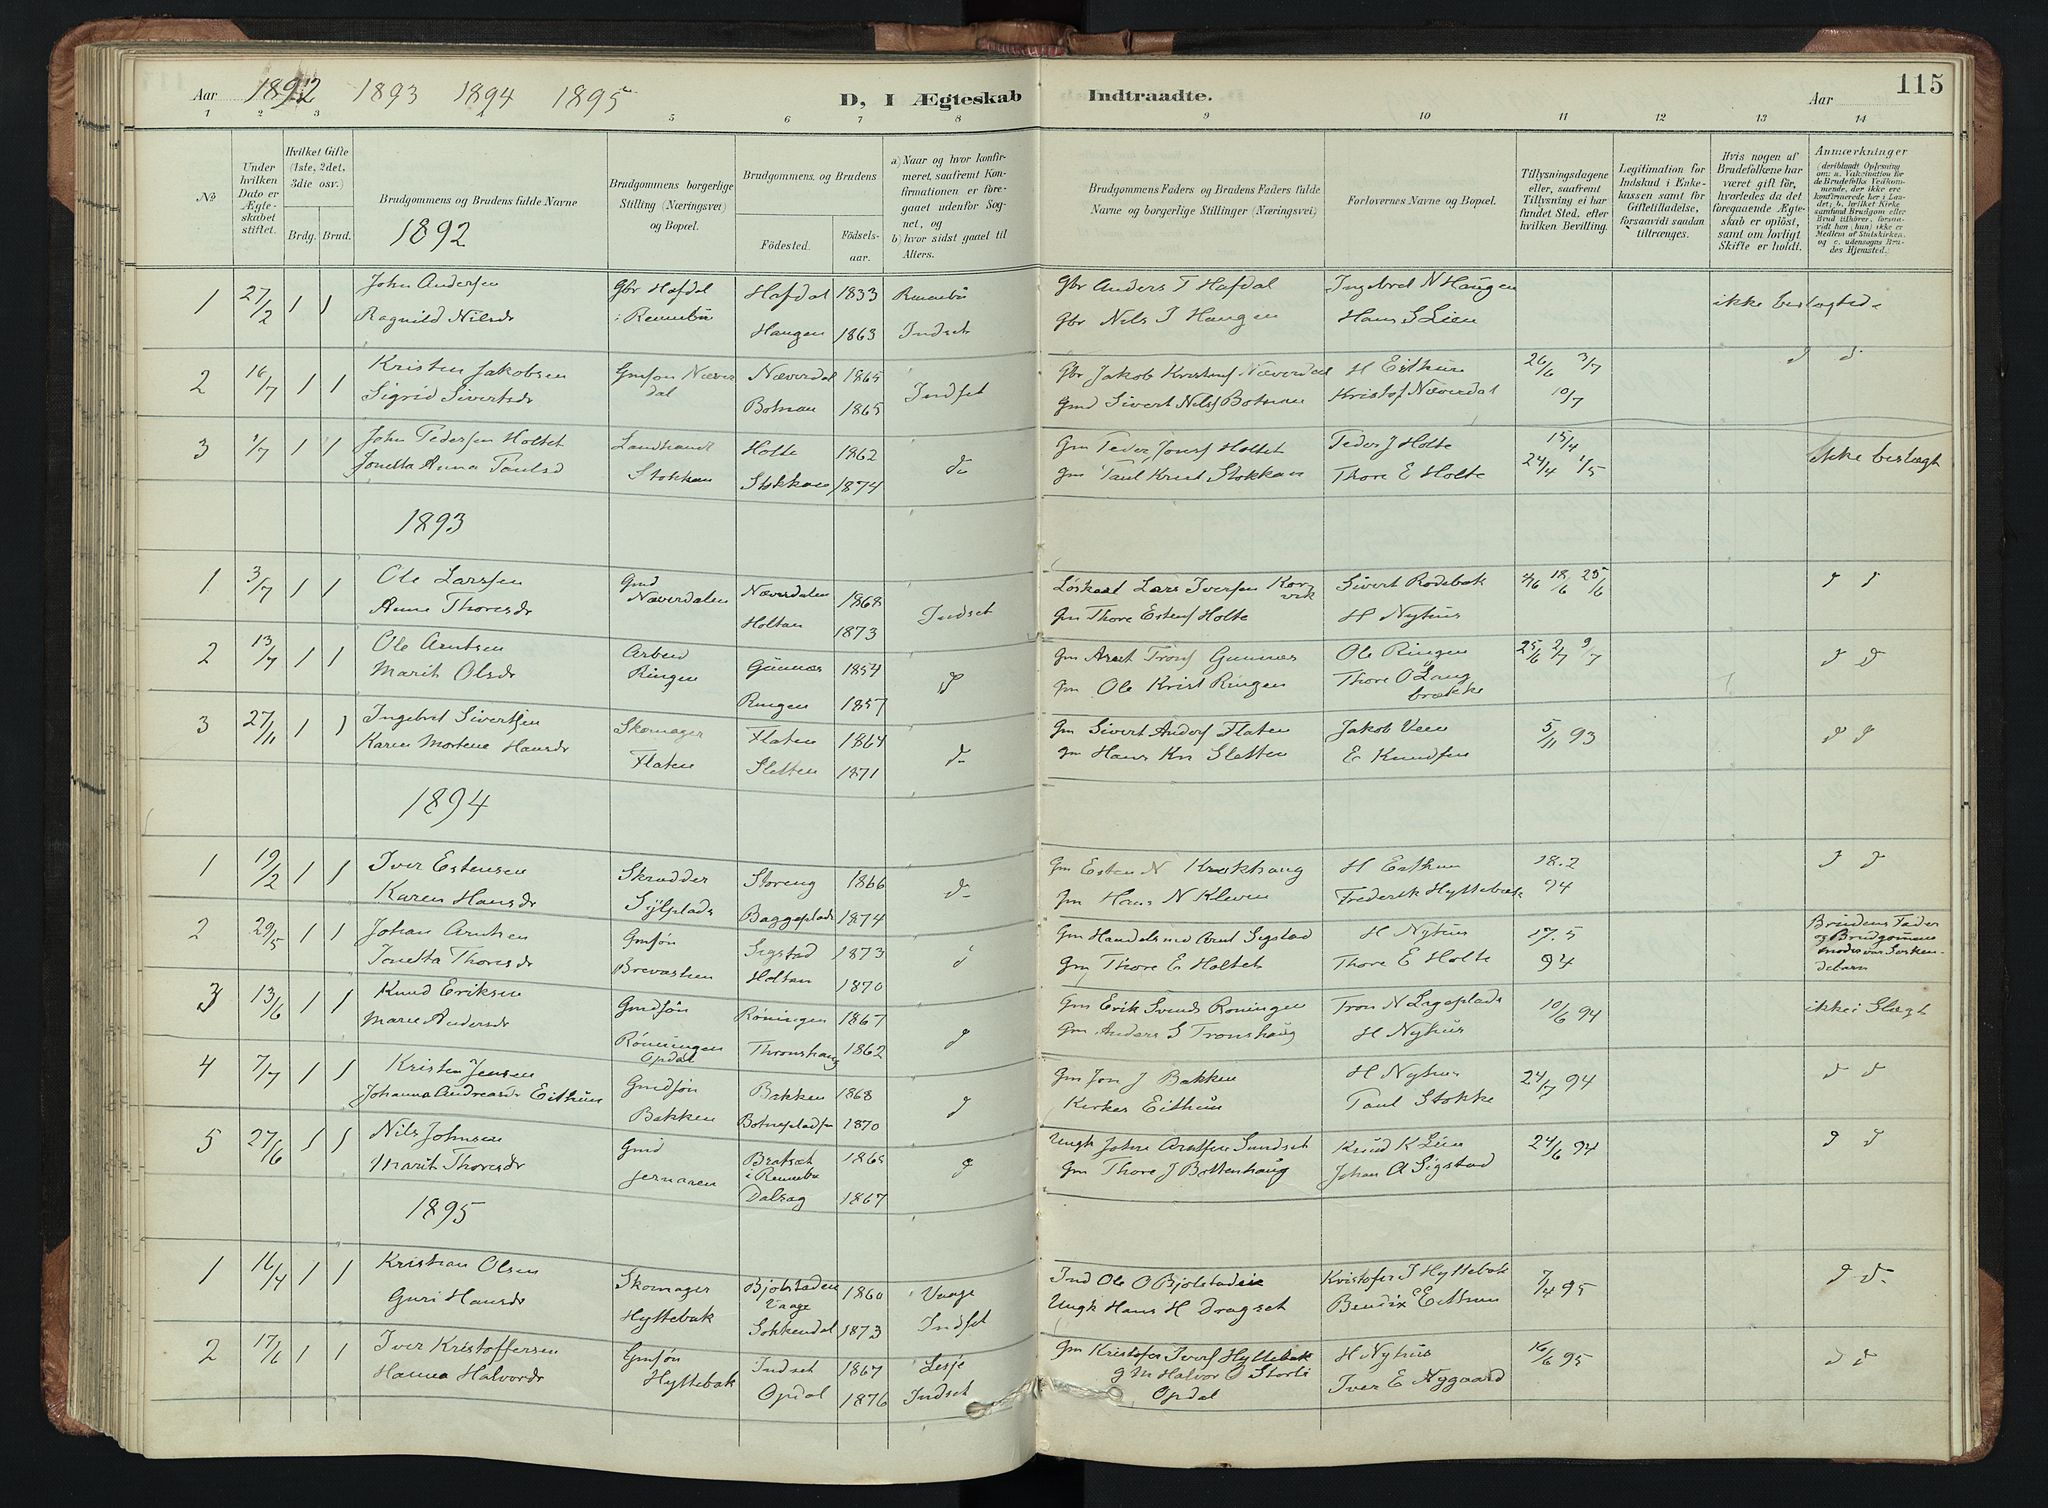 Aar 1892 1893 1894 1895 D, I Ægteskab Indtraadte. Aar 115
1 2 3 5 6 7 8 9 10 11 12 13 14
No
Under hvilken Dato er Ægteskabet stiftet.
Hvilket Gifte (1ste, 2det, 3die osv.)
Brdg. Brud.
Brudgommens og Brudens fulde Navne
Brudgommens borgerlige Stilling (Næringsvei) og Bopæl.
Brudgommens, og Brudens
Fødested. Fødselsaar.
a) Naar og hvor konfirmeret, saafremt Konfirmationen er foregaaet udenfor Sognet, og
b) hvor sidst gaaet til Alters.
Brudgommens Faders og Brudens Faders fulde Navne og borgerlige Stillinger (Næringsvei)
Forlovernes Navne og Bopæl.
Tillysningsdagene eller, saafremt Tillysning ei har fundet Sted, efter hvilken Bevilling.
Legitimation for Indskud i Enkekassen samt for Giftetilladelse, forsaavidt saadan tiltrænges.
Hvis nogen af Brudefolkene har været gift før, hvorledes da det foregaaende Ægteskab er opløst, samt om lovligt Skifte er holdt.
Anmærkninger
(deriblandt Oplysning om: a. Vaksination for de Brudefolks Vedkommende, der ikke ere konfirmerede her i Landet; b. hvilket Kirkesamfund Brudgom eller Brud tilhører, forsaavidt han (hun) ikke er Medlem af Statskirken, og c. udensogns Brudes Hjemsted.
1892
1 27/2 1 1 John Andersen Gbr Hofdal Hofdal 1833 Rennebu Gbr Anders T Hafdal Ingebret N Haugen ikke beslegtede
Ragnild Nilsdr i Rennebu Haugen 1863 Indset Gbr Nils J Haugen Hans S Lien
2 16/7 1 1 Kristen Jakobsen Gmsøn Næver Næverdal 1865 Indset Gbr Jakob Næverdal H Eithun 26/6 3/7 d d
Sigrid Sivertsdr dal Botnan 1865 Gmd Sivert Nils Botnan Kristof Næverdal 10/7
3 1/7 1 1 John Pedersen Holtet Landhandl Holte 1862 d- Gm Peder Jons Holtet Peder J Holte 15/4 ikke beslægt
Jonetta Anna Paulsd Stokkan Stokkan 1874 Gm Paul Krist Stokkan Thore E Holte 24/4 1/5
1893
1 3/7 1 1 Ole Larssen Gmd Næverdalen 1868 Indset Lars Iversen Korvik Sivert Rodebak 4/6 18/6 25/6 d d
Anne Thoresdr Næverdalen Holtan 1873 Gm Thore Estens Holte H Nyhus
2 13/7 1 1 Ole Arntsen Arbeid Gunnæs 1854 d Gm Arnt Trons Gunnes Ole Ringen 25/6 2/7 9/7 d d
Marit Olsdr Ringen Ringen 1857 Gm Ole Krist Ringen Thore O Langbrække
3 27/11 1 1 Ingebrt Sivertsen Skomager Flaten 1864 d- Gm Sivert Anders Flaten Jakob Veen 5/11 93 d d
Karen Mortene Hansdr Flaten Sletten 1871 Gm Hans Kn Sletten E Knudsen
1894
1 19/2 1 1 Iver Estensen Skrædder Storeng 1866 d- Gm Esten N Krokhaug H Eithun 18.2 d d
Karen Hansdr Baggeplads 1874 Gm Hans N Kleven Frederik Hyttebak 94
2 29/5 1 1 Johan Arntsen Gmsøn Sigstad 1873 d Gm Handelsmd Arnt Sigstad H Nyhus 17.5 Brudens Fader
Jonetta Thoresdr Holtan 1870 Gm Thore E Holtet Thore E Holte 94 og Brudgommens moder var Søskendebarn
3 13/6 1 1 Knud Eriksen Gmdsøn Røningen 1867 d Gm Erik Svends Roningen Tron N Lageplads 10/6 94 ikke i Slægt
Marie Andersdr Rønningen Opdal Thronshaug 1862 Gm Anders S Tronshaug H Nyhus
4 7/7 1 1 Kristen Jensen Gmdsøn Bakken 1868 d Gm Jon J Bakken H Nyhus 24/7 94 d d
Johanna Andreasdr Eithun Bakken 1870 Kirkes Eithun Paul Stokke
5 27/6 1 1 Nils Johnsen Gmd Bratset i Rennebu 1865 d Ungk John Arntsen Sundset Knud K Lien 24/6 94 d d
Marit Thoresdr Jernaren Dalsag 1867 Gm Thore J Bottenhaug Johan A Sigstad
1895
1 16/4 1 1 Kristian Olsen Skomager Bjolstadene Vaage 1860 Vaage Ind Ole O Bjolstadeie Kristofer J Hyttebak 7/4 95 d d-
Guri Hansdr Hyttebak Sokkendal 1873 Indset Ungk Hans H Dragset Bendix E Eithun
2 17/6 1 1 Iver Kristoffersen Gmsøn Indset 1867 Lesje Gm Kristofer Ivers Hyttebak H Nyhus 16/6 95 d d
Hanna Halvordr Hyttebak Opdal 1876 Indset Gm Halvor O Storli Opdal Iver E Nygaard